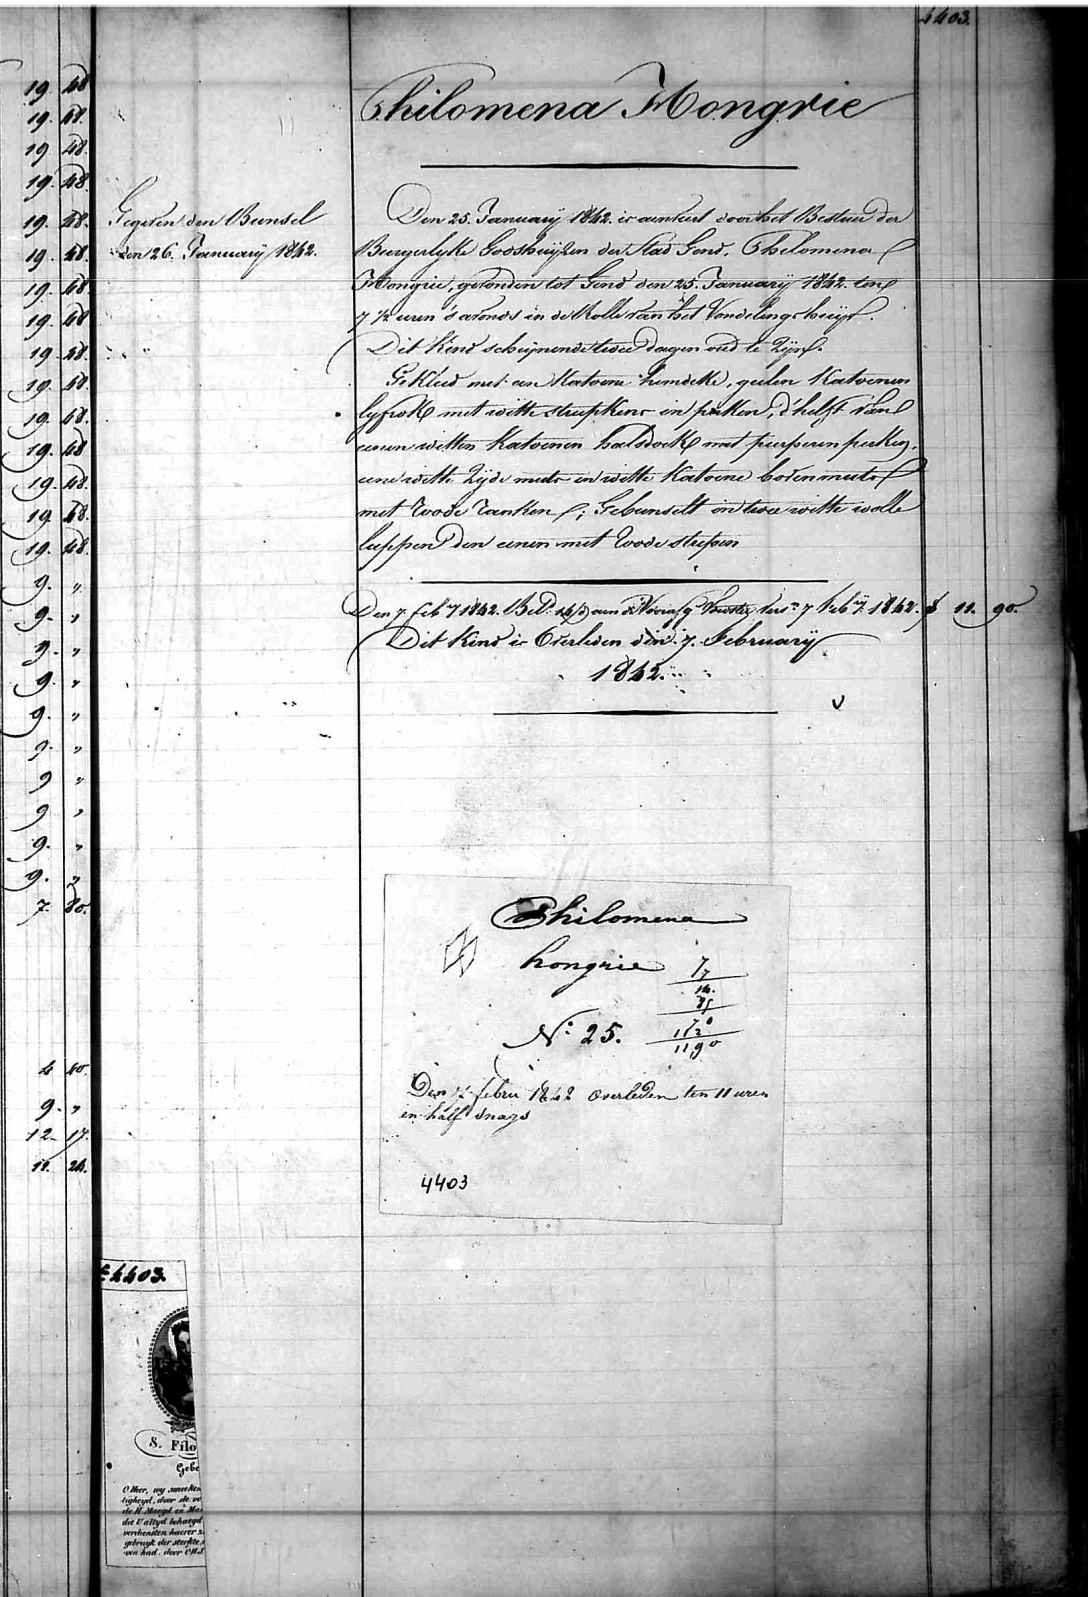 4403.
19. 48
19. 48.
19 48.
19. 48.
19. 48.
19. 48.
19. 48.
19. 48
19. 48.
19. 48.
19. 48.
19. 48
19. 48.
19. 48.
19. 48.
9. "
9. "
9. "
9. "
9. "
9. "
9 "
9 "
9. "
9. "
7. 80.
4 40.
9. "
12. 17.
11. 24.
Gegeven den Bunsel
den 26. January 1842.
Philomena Hongrie
Den 25. January 1842. is aenveert door het Bestuer der
Burgerlyke Godshuyzen der Stad Gend, Philomena
Hongrie, gevonden tot Gend den 25. January 1842. ten
7 ½ uren 's avonds in de Rolle van het Vondelinghuys.
Dit Kind schynende twee dagen oud te zyn.
Gekleed met een Katoene hemdeke, geelen Katoenen
lyfrok met witte streepkens en perken, d'helft van
eenen witten Katoenen halsdoek met peersen perken,
eene witte zyde muts en witte Katoene bovenmuts
met roode ranken; Gebunselt in twee witte wolle
lappen den eenen met roode strepen
Den 7 feby 1842. 7 Feby 1842. f 11. 90.
Dit Kind is Overleden den 7. February
1842.
Philomena
hongrie
N° 25.
7
7
14.
85
70
112
11,90
Den 7 febru 1842 overleden ten 11 uren
en half snags
4403
4403.
S. Filo
Gebe
O Heer, wy smeeken
tigheyd, door de ve
de H. Maegd en Mar
die U altyd behaegd
verdiensten haerer z
gebruyk der sterkte